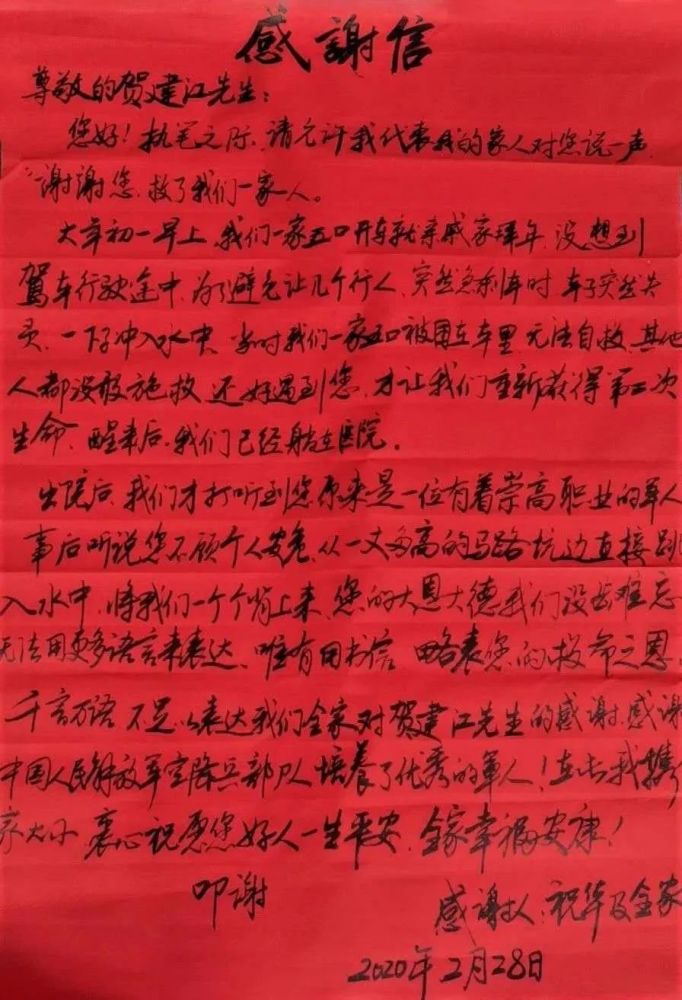 感謝信
尊敬的贺建江先生：
您好！执笔之际，请允许我代表我的家人对您说一声
“谢谢您，救了我们一家人。
大年初一早上，我们一家五口开车就亲戚家拜年，没想到
驾车行驶途中，为了避免让几个行人，突然急刹车时，车子突然失
灵，一下子冲入水中，当时我们一家五口被困在车里，无法自救，其他
人都没敢施救，还好遇到您，才让我们重新获得第二次
生命，醒来后，我们已经躺在医院。
出院后，我们才打听到您原来是一位有着崇高职业的军人
事后听说您不顾个人安危，从一丈多高的马路坑边直接跳
入水中，将我们一个个背上来，您的大恩大德我们没齿难忘
无法用更多语言来表达，唯有用书信，略表您的救命之恩，
千言万语不足以表达我们全家对贺建江先生的感谢，感谢
中国人民解放军空降兵部队培養了优秀的軍人！在此我携
家大小衷心祝愿您好人一生平安，全家幸福安康！
叩谢
感謝人：祝华及全家
2020年2月28日